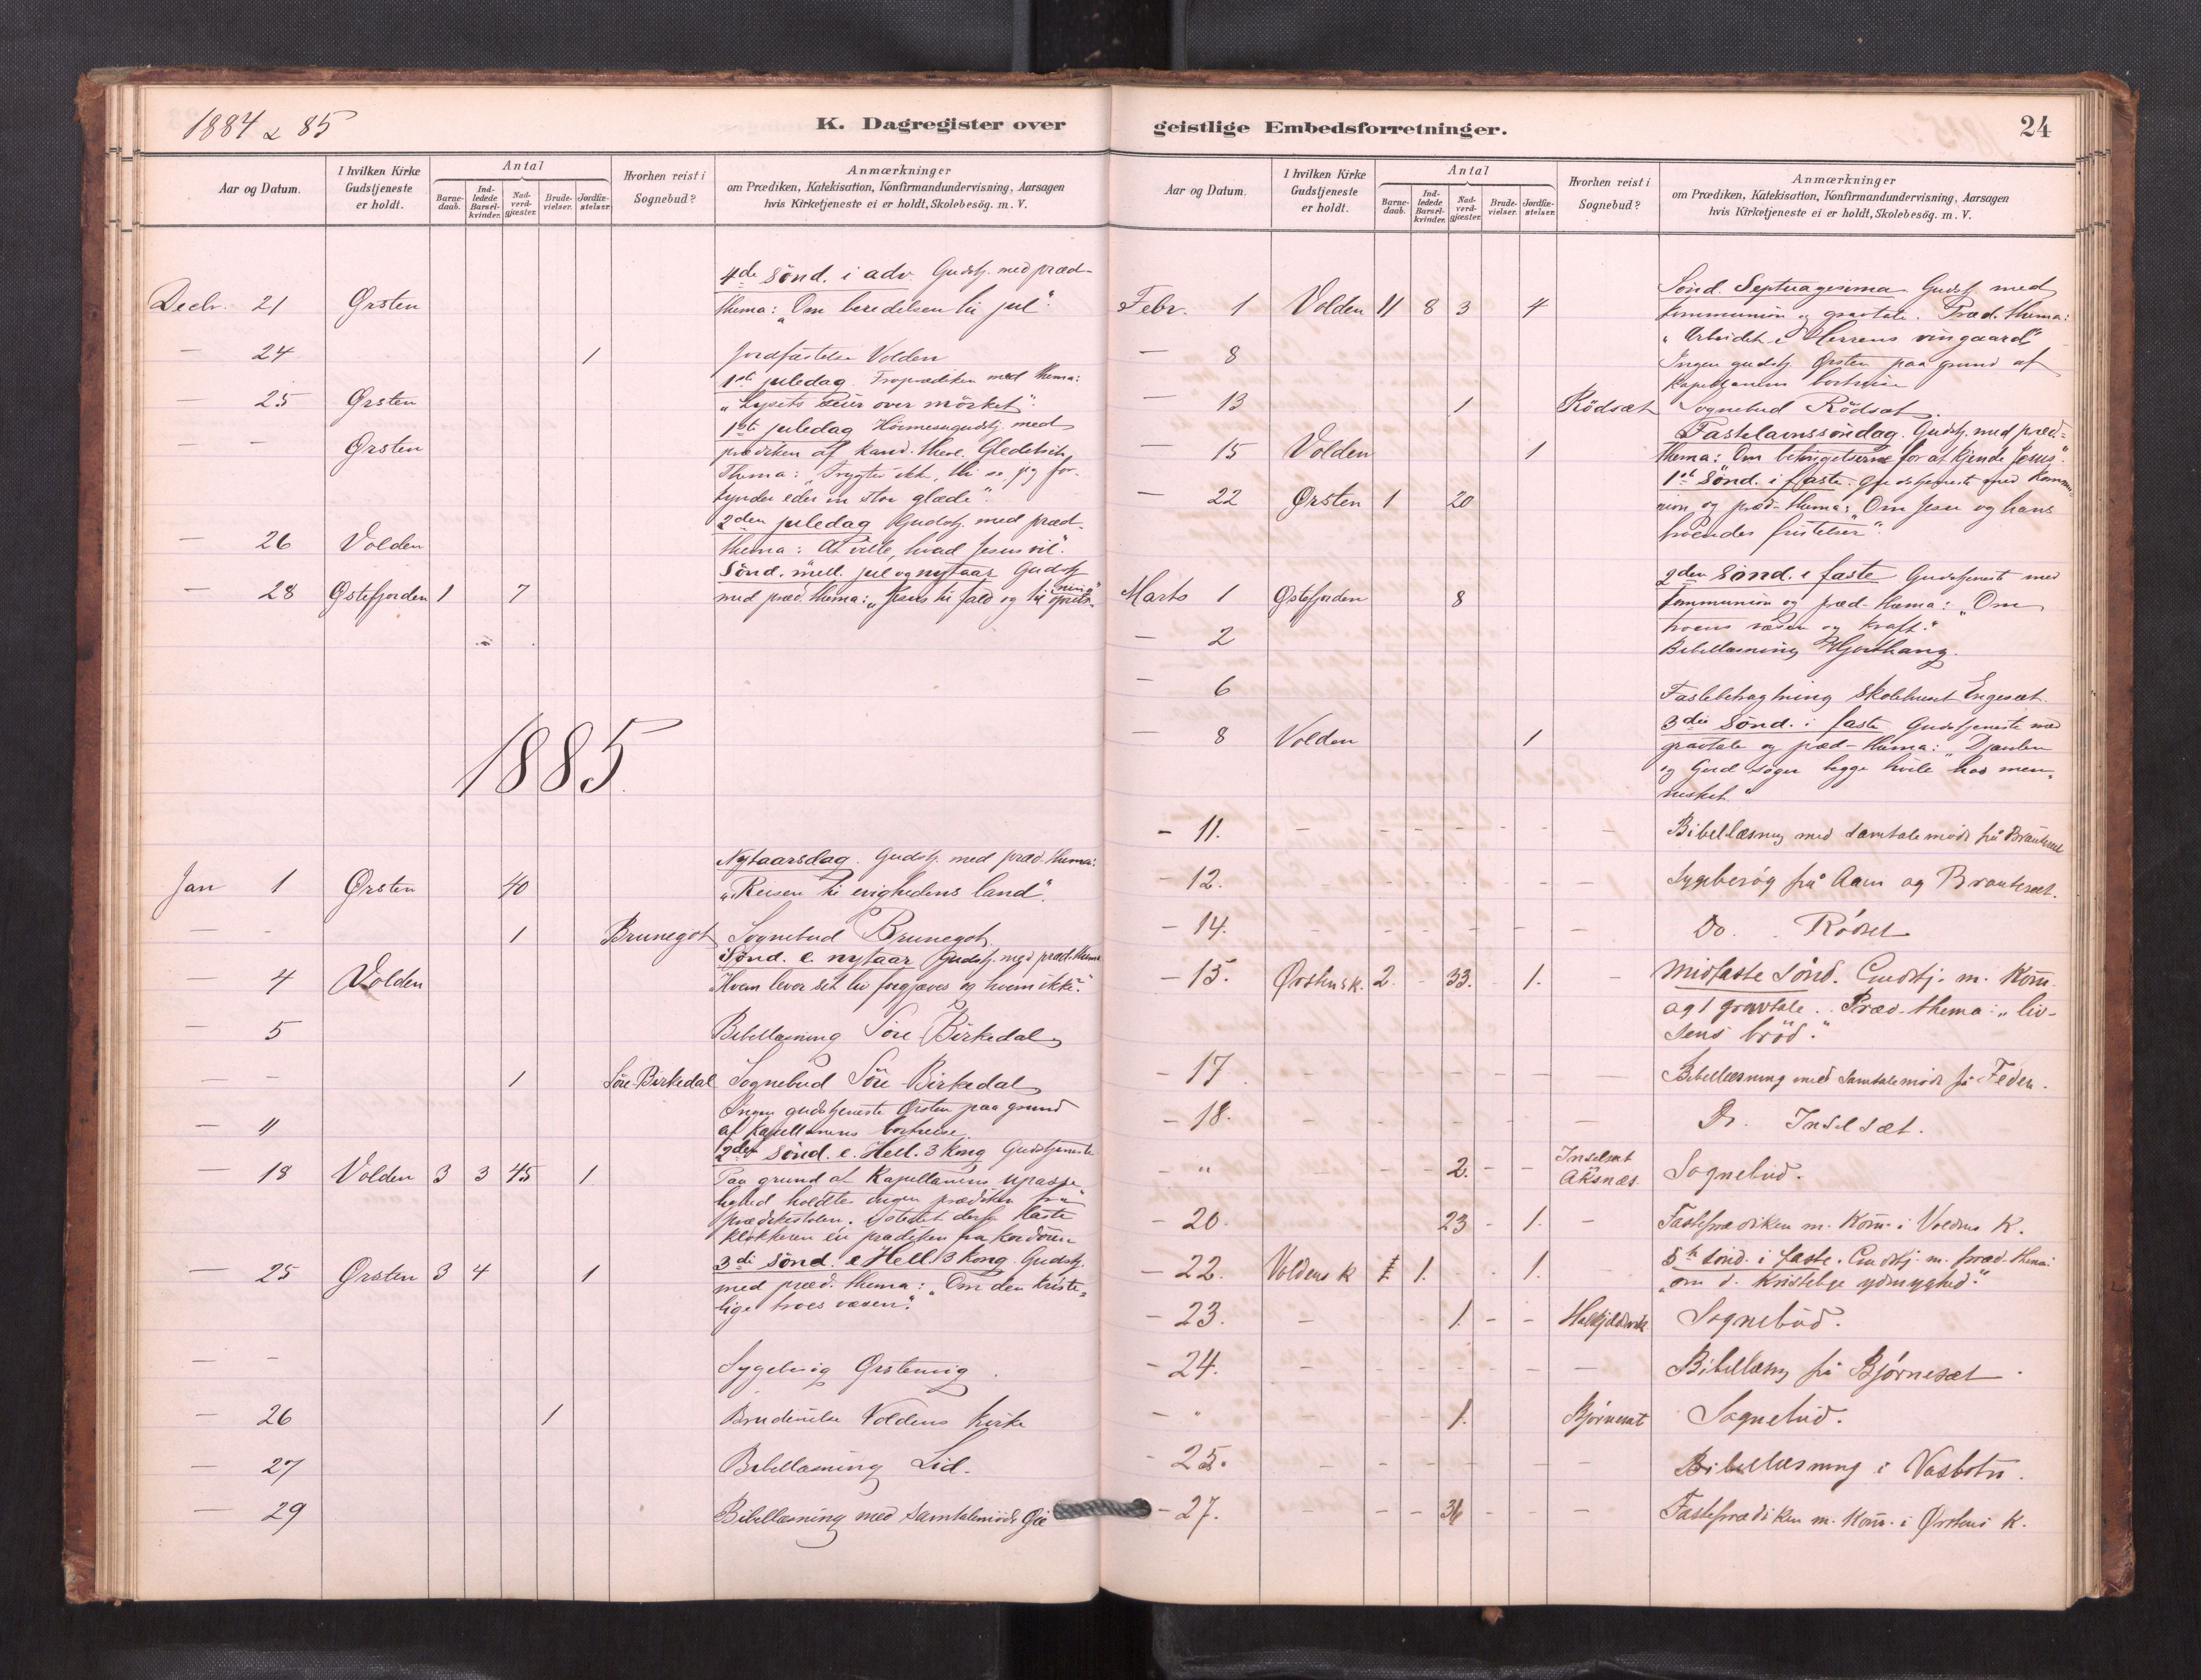 1884 & 85
K. Dagregister over
Aar og Datum.
I hvilken Kirke Gudstjeneste er holdt.
Antal
Barne-daab.
Ind-ledede Barsel-kvinder.
Nad-verd-gjæster.
Brude-vielser.
Jordfæ-stelser.
Hvorhen reist i Sognebud?
Anmærkninger
om Prædiken, Katekisation, Konfirmandundervisning, Aarsagen
hvis Kirketjeneste ei er holdt, Skolebesög. m. V.
4de Sönd. i adv. Gudstj. med præd-
Decbr. 21 Ørsten thema: "Om beredelsen til jul".
— 24 1 Jordfæstelse Volden
1ste juledag. Froprædiken med thema:
— 25 Ørsten "Lysets seier over mörket".
1ste juledag Höimessegudstj. med
— - Ørsten prædiken af kand. theol. Gleditsch
Thema: "Frygter ikke, thi se, jeg for-
kynder eder en stor glæde".
2den juledag Gudstj. med præd.
— 26 Volden thema: At ville, hvad Jesus vil".
Sönd. mell. jul og nytaar Gudstj.
— 28 Østefjorden 1 7 med præd. thema: "Jesus til fald og til opreis-
ning"
1885.
Nytaarsdag. Gudstj. med præd. thema:
Jan 1 Ørsten 40 "Reisen til evighedens land".
— - 1 Brunegot Sognebud Brunegot
Sönd. e. nytaar Gudstj. med præd. thema
— 4 Volden "Hvem lever sit liv forgjæves og hvem ikke?"
— 5 Bibellæsning Söre Birkedal
— - 1 Söre Birkedal Sognebud Söre Birkedal
Ingen gudstjeneste Ørsten paa grund
— 11 af kapellanens bortreise
2den Sönd. e. Hell. 3 Kong Gudstjeneste
— 18 Volden 3 3 45 1 Paa grund af Kapellanens upasse-
lighed holdtes ingen prædiken fra
prædikestolen. Istedet derfor læste
klokkeren en prædiken fra kordören
3die Sönd. e Hell 3 Kong. Gudstj.
— 25 Ørsten 3 4 1 med præd. thema: "Om den kriste-
lige troes væsen".
— - Sygebesög Ørstenvig.
— 26 1 Brudevielse Voldens Kirke
— 27 Bibellæsning Lid.
— 29 Bibellæsning med samtalemöde
geistlige Embedsforretninger.
24
Aar og Datum.
I hvilken Kirke Gudstjeneste er holdt.
Antal
Barne-daab.
Ind-ledede Barsel-kvinder.
Nad-verd-gjæster.
Brude-vielser.
Jordfæ-stelser.
Hvorhen reist i Sognebud?
Anmærkninger
om Prædiken, Katekisation, Konfirmandundervisning, Aarsagen
hvis Kirketjeneste ei er holdt, Skolebesög. m. V.
Sönd. Septuagesima. Gudstj. med
Febr. 1 Volden 11 8 3 4 kommunion og gravtale. Præd. thema:
"Arbeidet i Herrens vingaard"
— 8 Ingen gudstj. Ørsten paa grund af
kapellanens bortreise
— 13 1 Rödsæt Sognebud Rödsæt.
Fastelavnssöndag. Gudstj. med præd-
— 15 Volden 1 thema: Om betingelserne for at kjende Jesus".
1ste Sönd. i faste. Gudstjeneste med kommu-
— 22 Ørsten 1 20 nion og præd-thema: "Om Jesu og hans
troendes fristelser".
2den Sönd. i faste Gudstjeneste med
Marts 1 Østefjorden 8 kommunion og præd-thema: "Om
troens væsen og kraft."
— 2 Bibellæsning Hjorthaug.
— 6 Fastebetragtning Skolehuset Engeset.
3die Sönd. i faste Gudstjeneste med
— 8 Volden 1 gravtale og præd-thema: "Djævelen
og Gud söger begge hvile hos men-
nesket."
- 11. Bibellæsning med samtalemöde på Brauteset
- 12. Sygebesög på Aam og Brauteset.
- 14. Do. Rödset
- 15. Ørstens k. 2. 33. 1. Midfaste Sönd. Gudstj. m. Kom.
og 1 gravtale. Præd-thema: "Liv-
sens bröd."
- 17 Bibellæsning med Samtalemöde på
- 18. Do. Inselsæt.
- " 2. Inselsæt Aksnæs Sognebud.
- 20. 23 1. Fasteprædiken m. Kom. i Voldens K.
- 22. Voldens k 1 1. 1. 5te sönd. i faste. Gudstj. m. præd-thema:
"om d. kristelige ydmyghed."
- 23. 1. Sognebud.
- 24. Bibellæsng på Bjørneset.
- " 1. Bjørneset Sognebud.
- 25. Bibellæsning i Vasbotn.
- 27. 36 Fasteprædiken m. Kom. i Ørstens K.